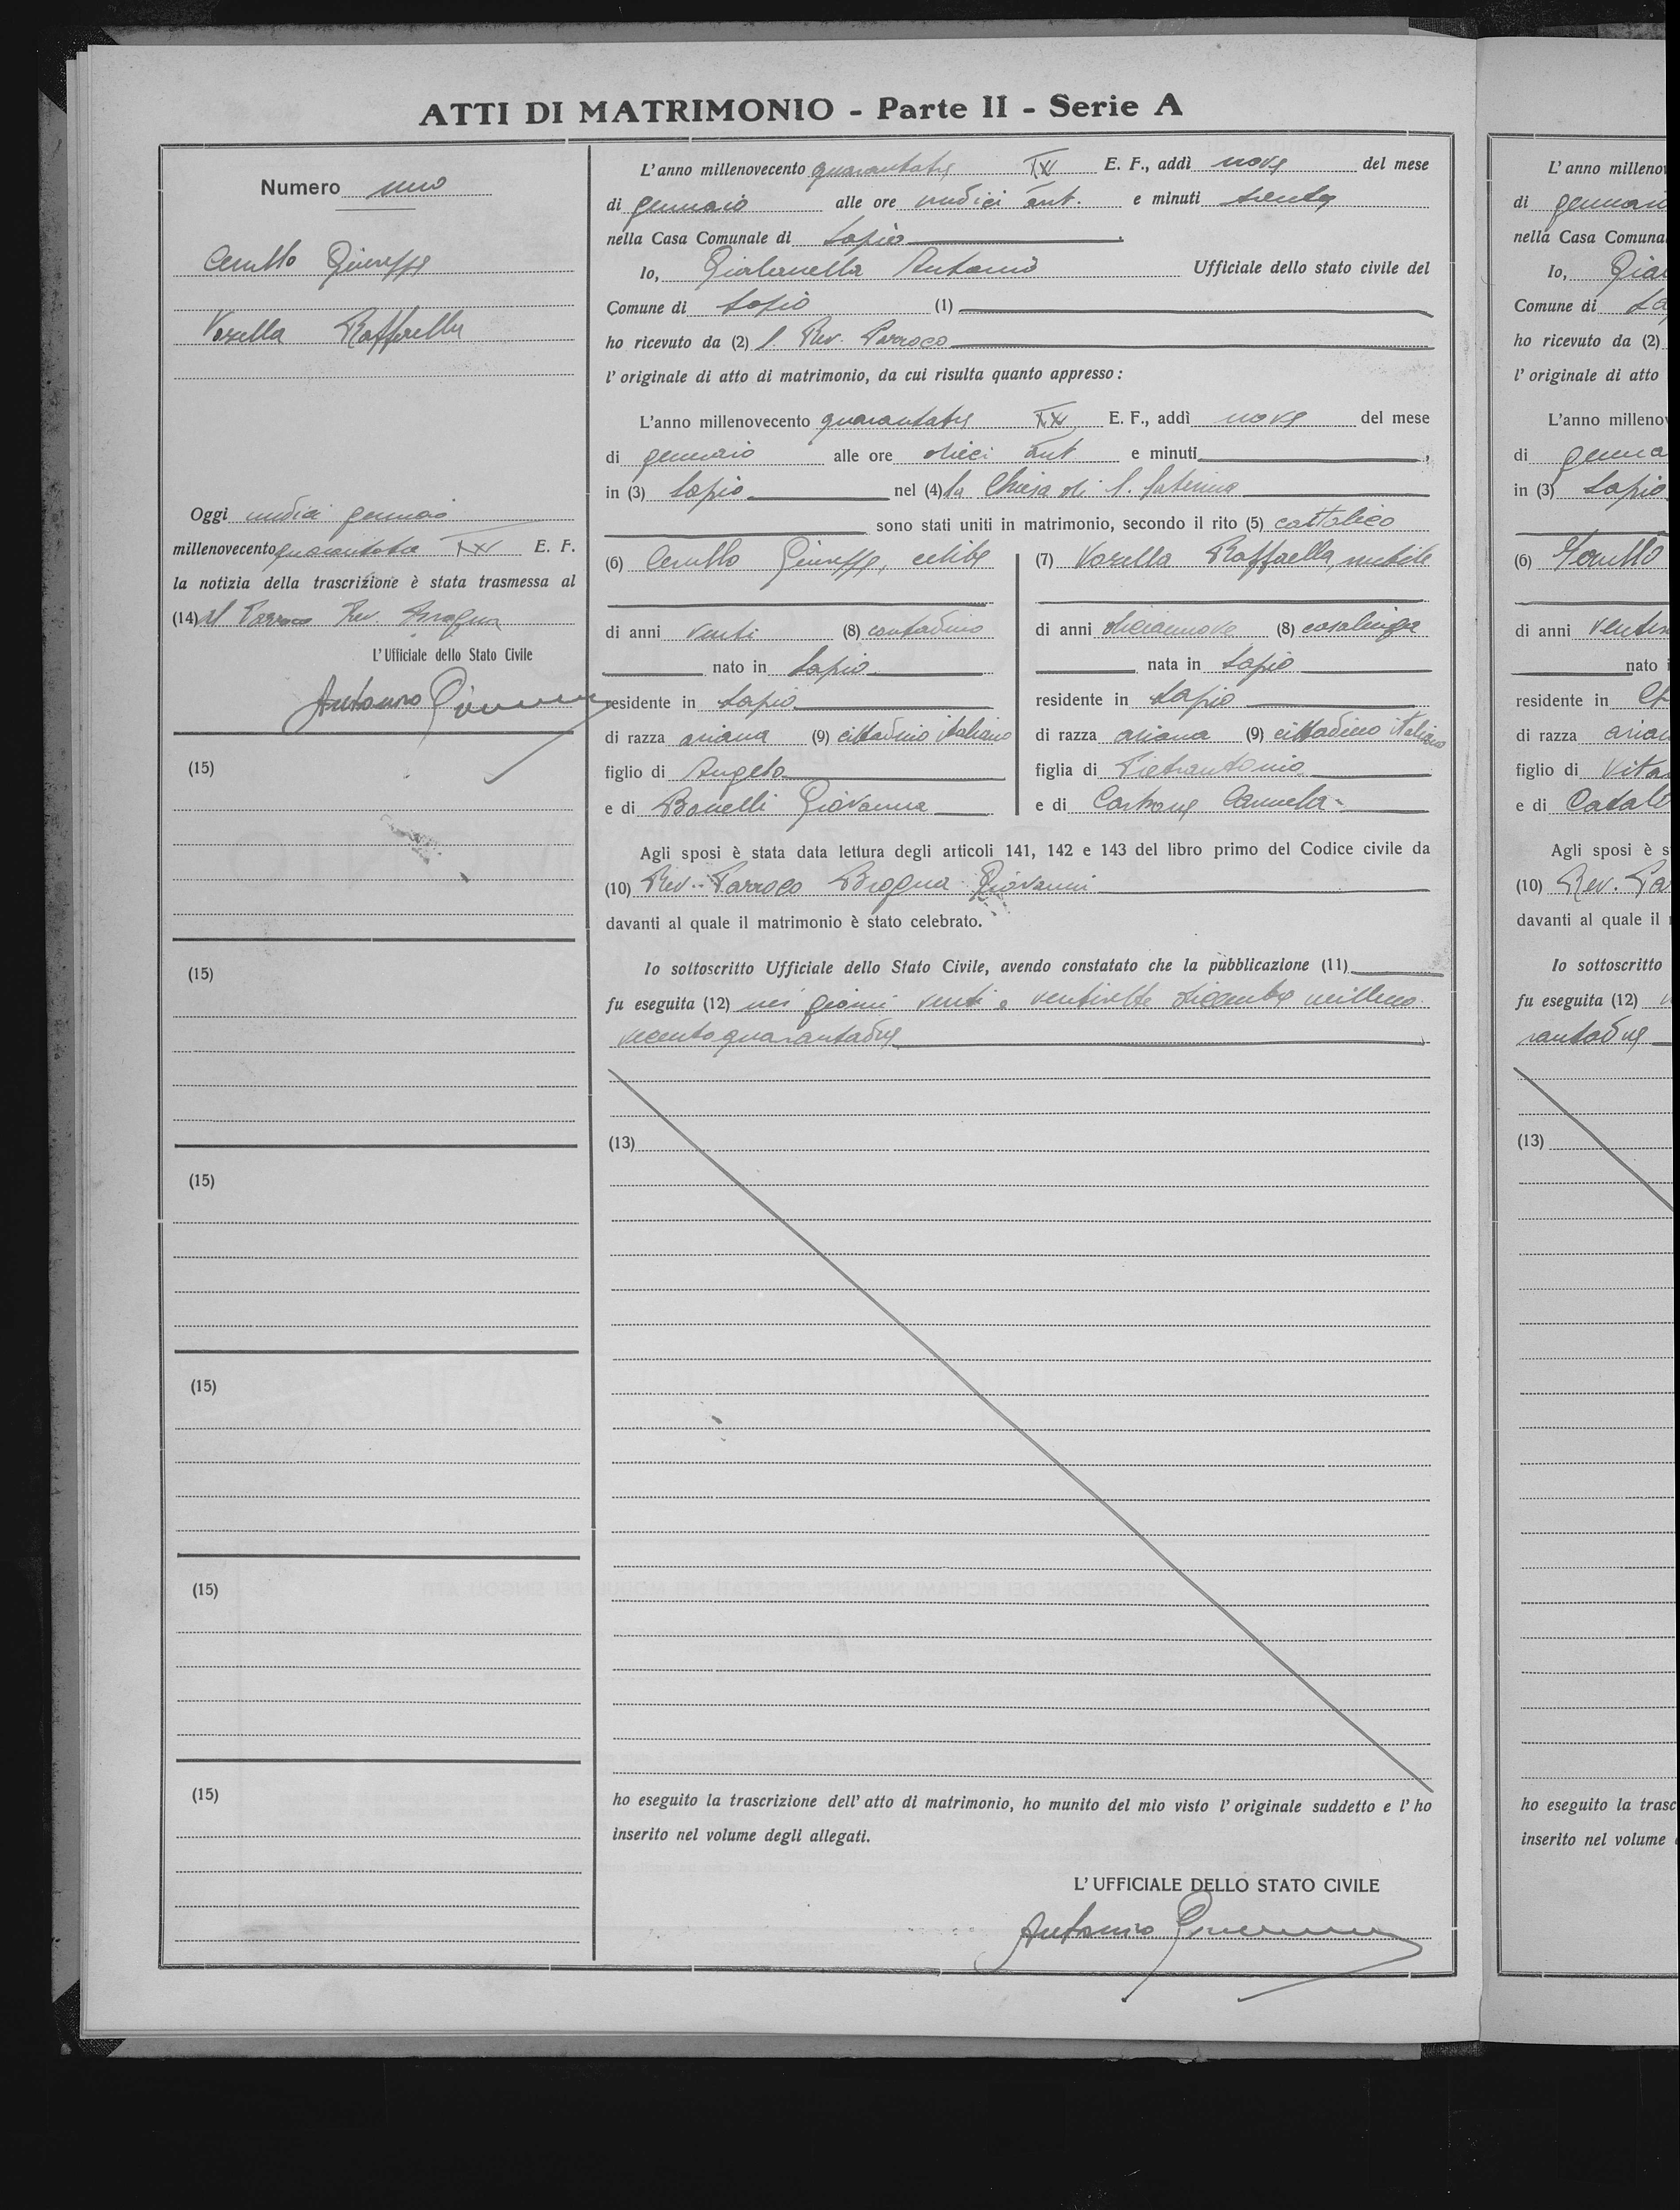 ATTI DI MATRIMONIO - Parte II - Serie A
Numero uno
Cerullo Giuseppe
Vozella Raffaella
Oggi undici gennaio
millenovecento quarantatre XXI E. F.
la notizia della trascrizione è stata trasmessa al
(14) Al Parroco Rev.
L'Ufficiale dello Stato Civile
Antonio
(15)
(15)
(15)
(15)
(15)
(15)
L'anno millenovecento quarantatre E. F., addì nove del mese
di gennaio alle ore undici ant. e minuti trenta
nella Casa Comunale di Lapio
Io, Gialanella Antonio Ufficiale dello stato civile del
Comune di Lapio (1)
ho ricevuto da (2) l. Rev. Parroco
l'originale di atto di matrimonio, da cui risulta quanto appresso:
L'anno millenovecento quarantatre E. F., addì nove del mese
di gennaio alle ore dieci ant e minuti
in (3) Lapio nel (4) la Chiesa di S. Caterina
sono stati uniti in matrimonio, secondo il rito (5) cattolico
(6) Cerullo Giuseppe, celibe
di anni venti (8) contadino
nato in Lapio
residente in Lapio
di razza ariana (9) cittadino italiano
figlio di Angelo
e di Bonelli Giovanna
(7) Vozella Raffaella, nubile
di anni diciannove (8) casalinga
nata in Lapio
residente in Lapio
di razza ariana (9) cittadino italiano
figlia di Pietrantonio
e di Carbone Carmela
Agli sposi è stata data lettura degli articoli 141, 142 e 143 del libro primo del Codice civile da
(10) Rev. Parroco Giovanni
davanti al quale il matrimonio è stato celebrato.
Io sottoscritto Ufficiale dello Stato Civile, avendo constatato che la pubblicazione (11)
fu eseguita (12) nei giorni venti e ventisette dicembre milleno
vecentoquarantadue
(13)
ho eseguito la trascrizione dell'atto di matrimonio, ho munito del mio visto l'originale suddetto e l'ho
inserito nel volume degli allegati.
L'UFFICIALE DELLO STATO CIVILE
Antonio
L'anno milleno
di gennaio
nella Casa Comuna
Io, Gia
Comune di La
ho ricevuto da (2)
l'originale di atto
L'anno milleno
di genna
in (3) Lapio
(6)
di anni venti
nato i
residente in
di razza arian
figlio di Vita
e di Catal
Agli sposi è s
(10) Rev. Pa
davanti al quale il
Io sottoscritto
fu eseguita (12)
rantadue
(13)
ho eseguito la trasc
inserito nel volume